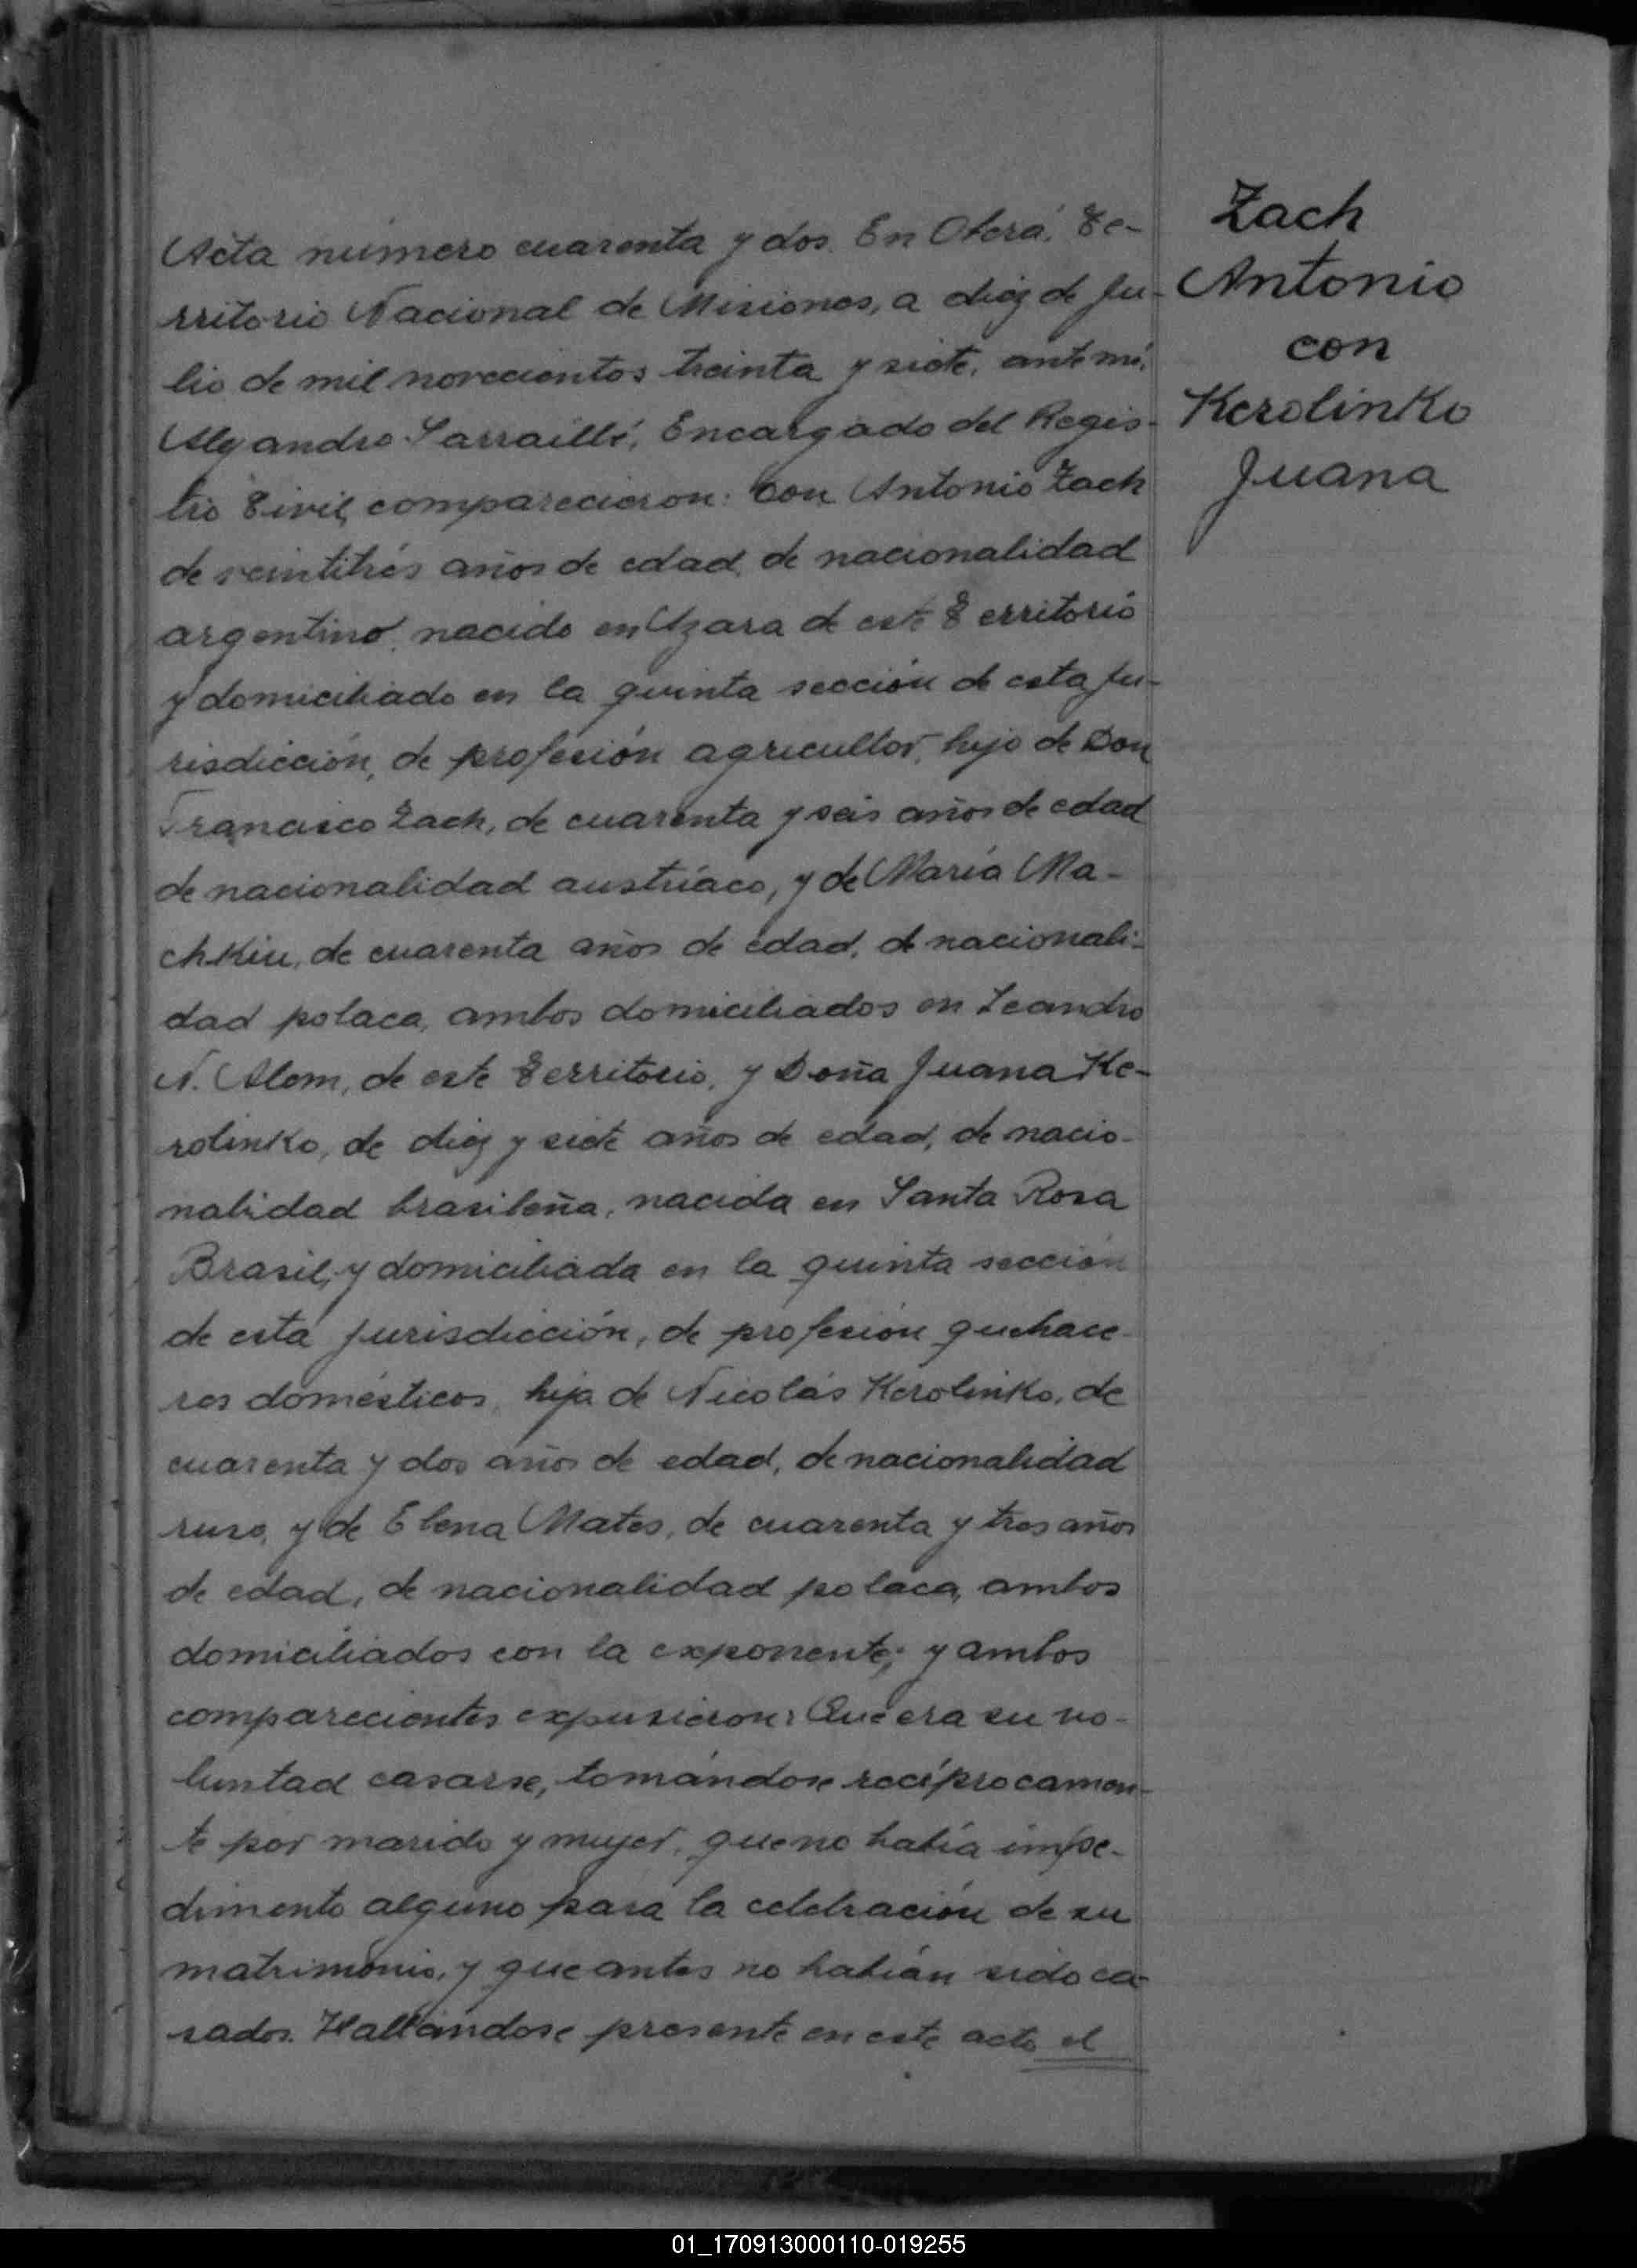 Acta número cuarenta y dos. En Oberá, Te-
rritorio Nacional de Misiones, a diez de Ju-
lio de mil novecientos treinta y siete, ante mí,
Alejandro Sarraillé, Encargado del Regis-
tro Civil, comparecieron: Don Antonio Zach
de veintitrés años de edad, de nacionalidad
argentino, nacido en Azara de este Territorio
y domiciliado en la quinta sección de esta Ju-
risdicción, de profesión agricultor, hijo de Don
Francisco Zach, de cuarenta y seis años de edad
de nacionalidad austríaco, y de María Ma-
chkiu, de cuarenta años de edad, de nacionali-
dad polaca, ambos domiciliados en Leandro
N. Alem, de este Territorio, y Doña Juana Ke-
rolinko, de diez y siete años de edad, de nacio-
nalidad brasileña, nacida en Santa Rosa
Brasil, y domiciliada en la quinta sección
de esta Jurisdicción, de profesión quehace-
res domésticos, hija de Nicolás Kerolinko, de
cuarenta y dos años de edad, de nacionalidad
ruso, y de Elena Mates, de cuarenta y tres años
de edad, de nacionalidad polaca, ambos
domiciliados con la exponente; y ambos
comparecientes expusieron: Que era su vo-
luntad casarse, tomándose recíprocamen-
te por marido y mujer, que no había impe-
dimento alguno para la celebración de su
matrimonio, y que antes no habían sido ca-
sados. Hallándose presente en este acto el
Zach
Antonio
con
Kerolinko
Juana
01_170913000110-019255